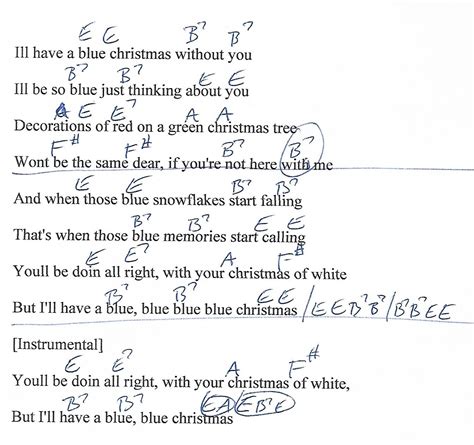 E E B7 B7
Ill have a blue christmas without you
B7 B7 E E
Ill be so blue just thinking about you
E E7 A A
Decorations of red on a green christmas tree
F# F# B7
Wont be the same dear, if you're not here with me
E E B7 B7
And when those blue snowflakes start falling
B7 B7 E E
That's when those blue memories start calling
E E7 A F#
Youll be doin all right, with your christmas of white
B7 B7 E E
But I'll have a blue, blue blue blue christmas /E E B7 B7/B7 B7 E E
[Instrumental]
E E7 A F#
Youll be doin all right, with your christmas of white,
B7 B7 E A E B7 E
But I'll have a blue, blue christmas